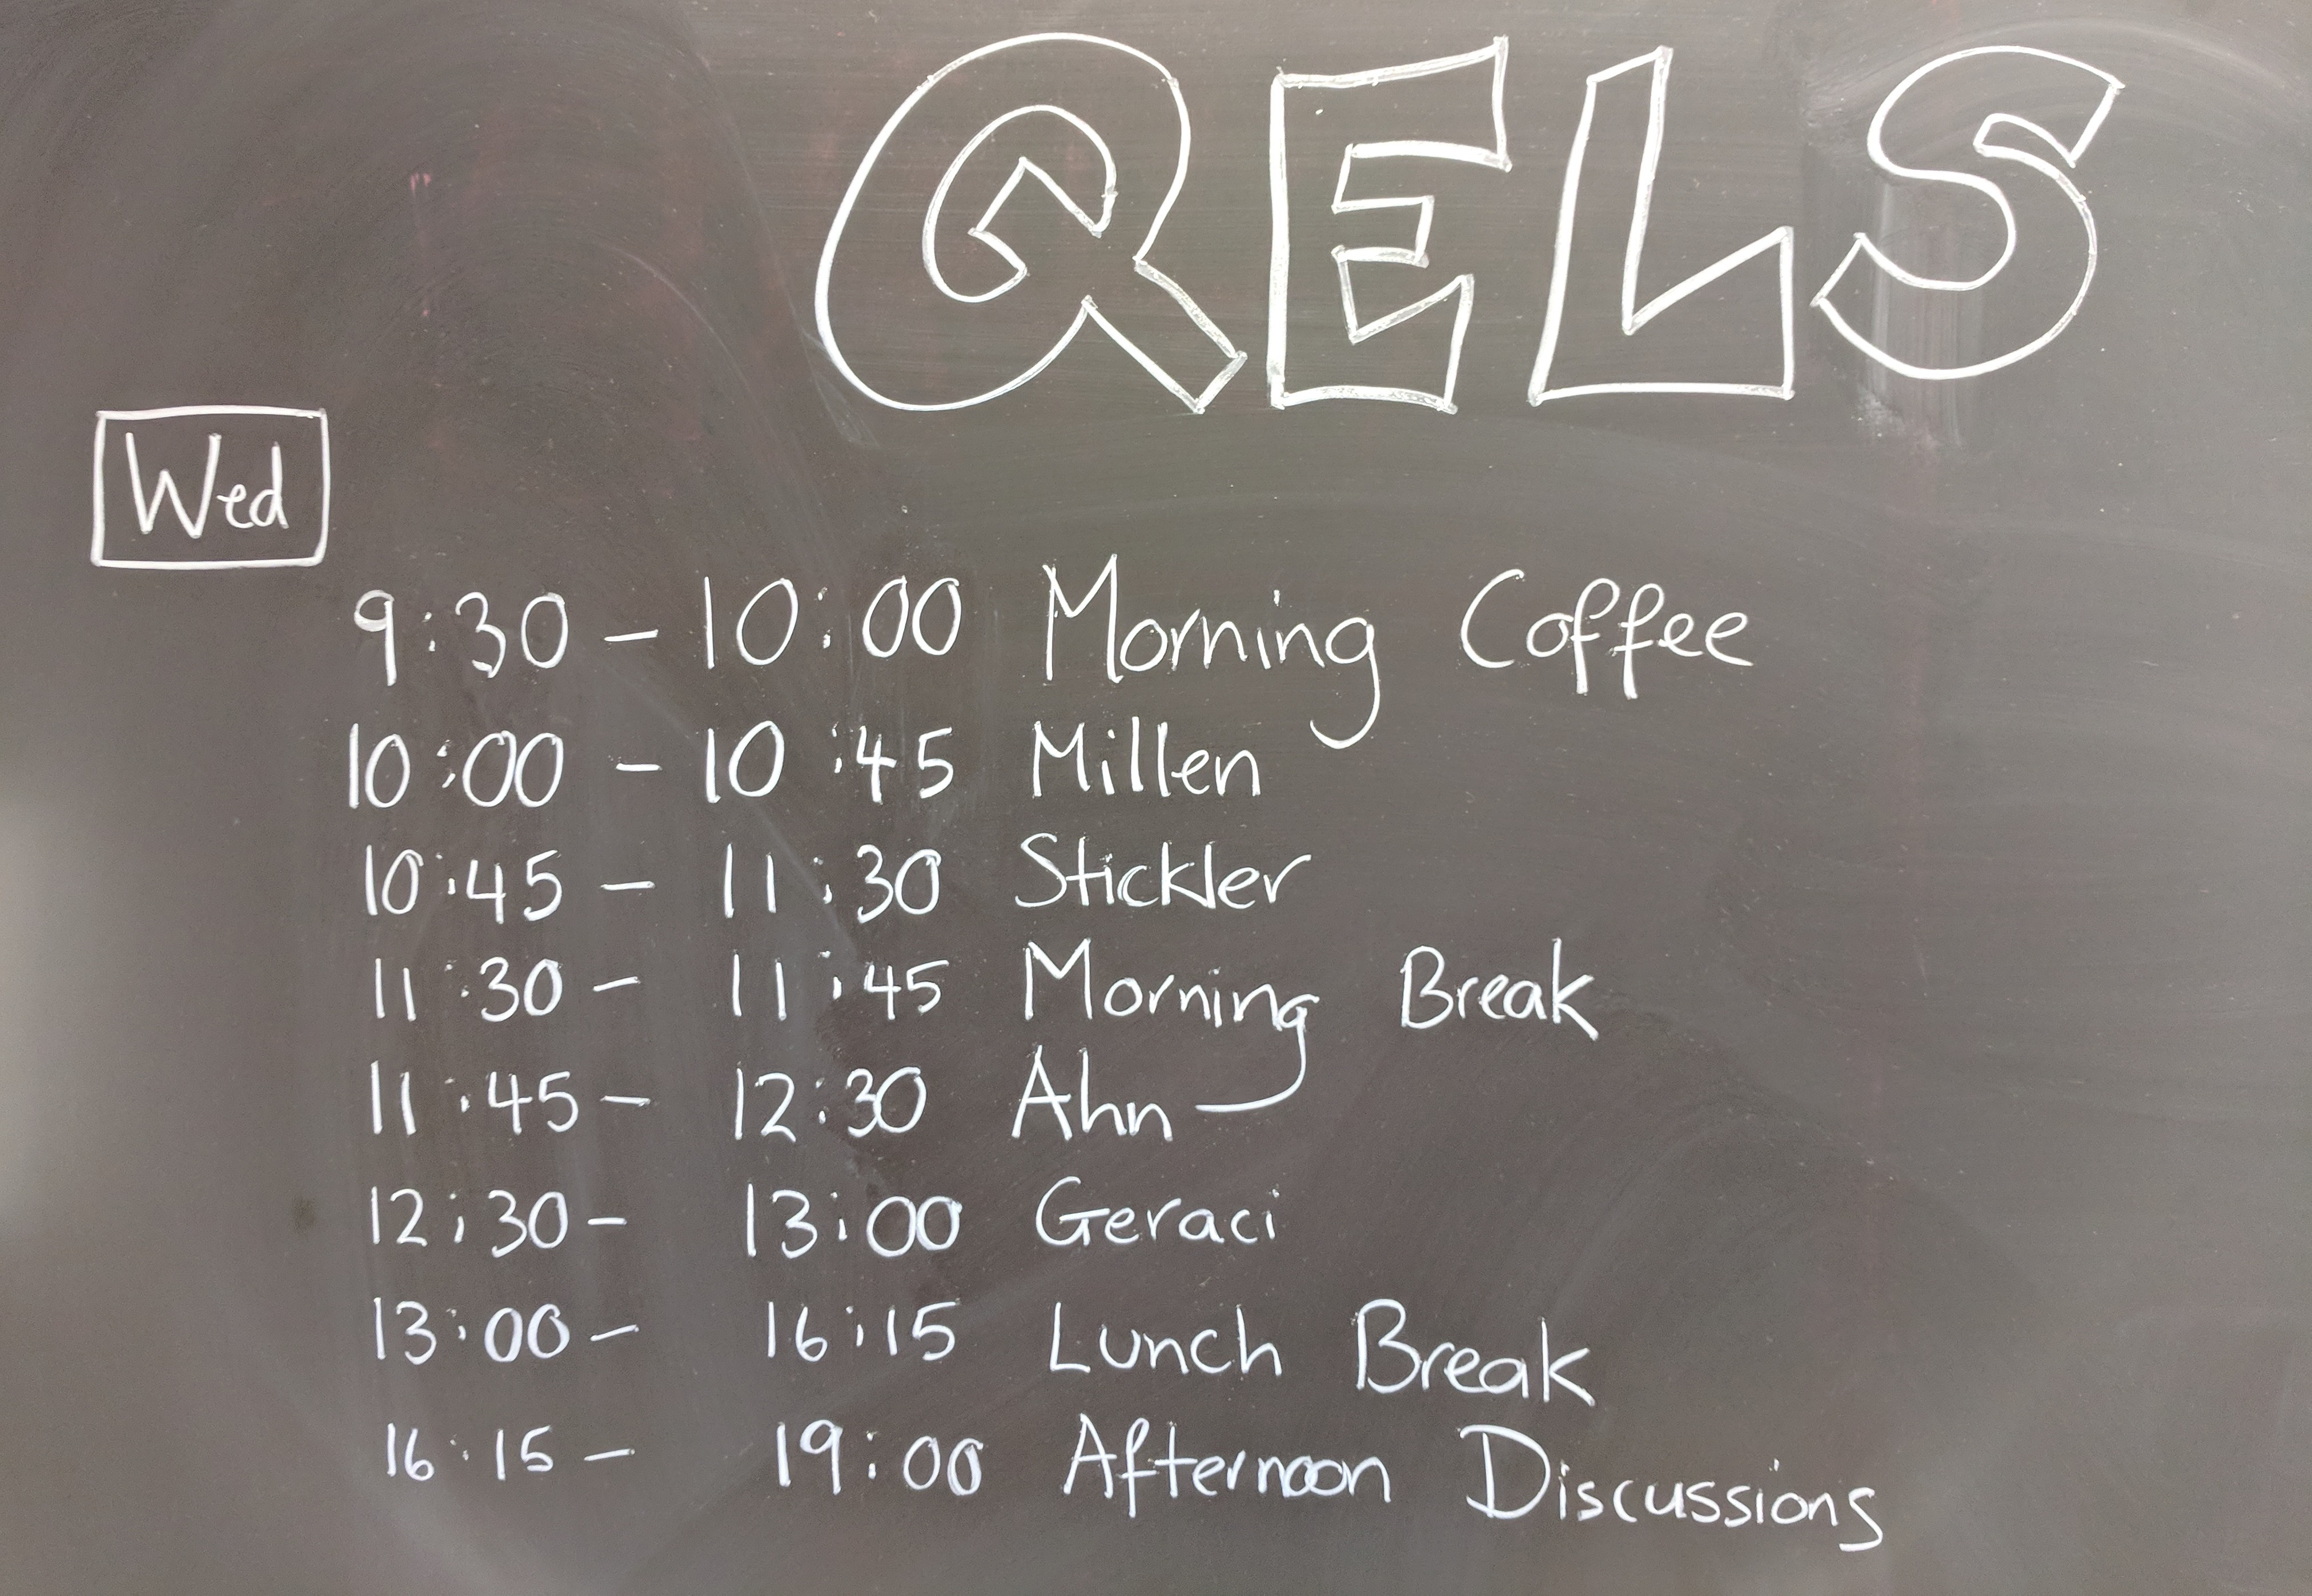 QELS
Wed
9:30 - 10:00 Morning Coffee
10:00 - 10:45 Millen
10:45 - 11:30 Stickler
11:30 - 11:45 Morning Break
11:45 - 12:30 Ahn
12:30 - 13:00 Geraci
13:00 - 16:15 Lunch Break
16:15 - 19:00 Afternoon Discussions